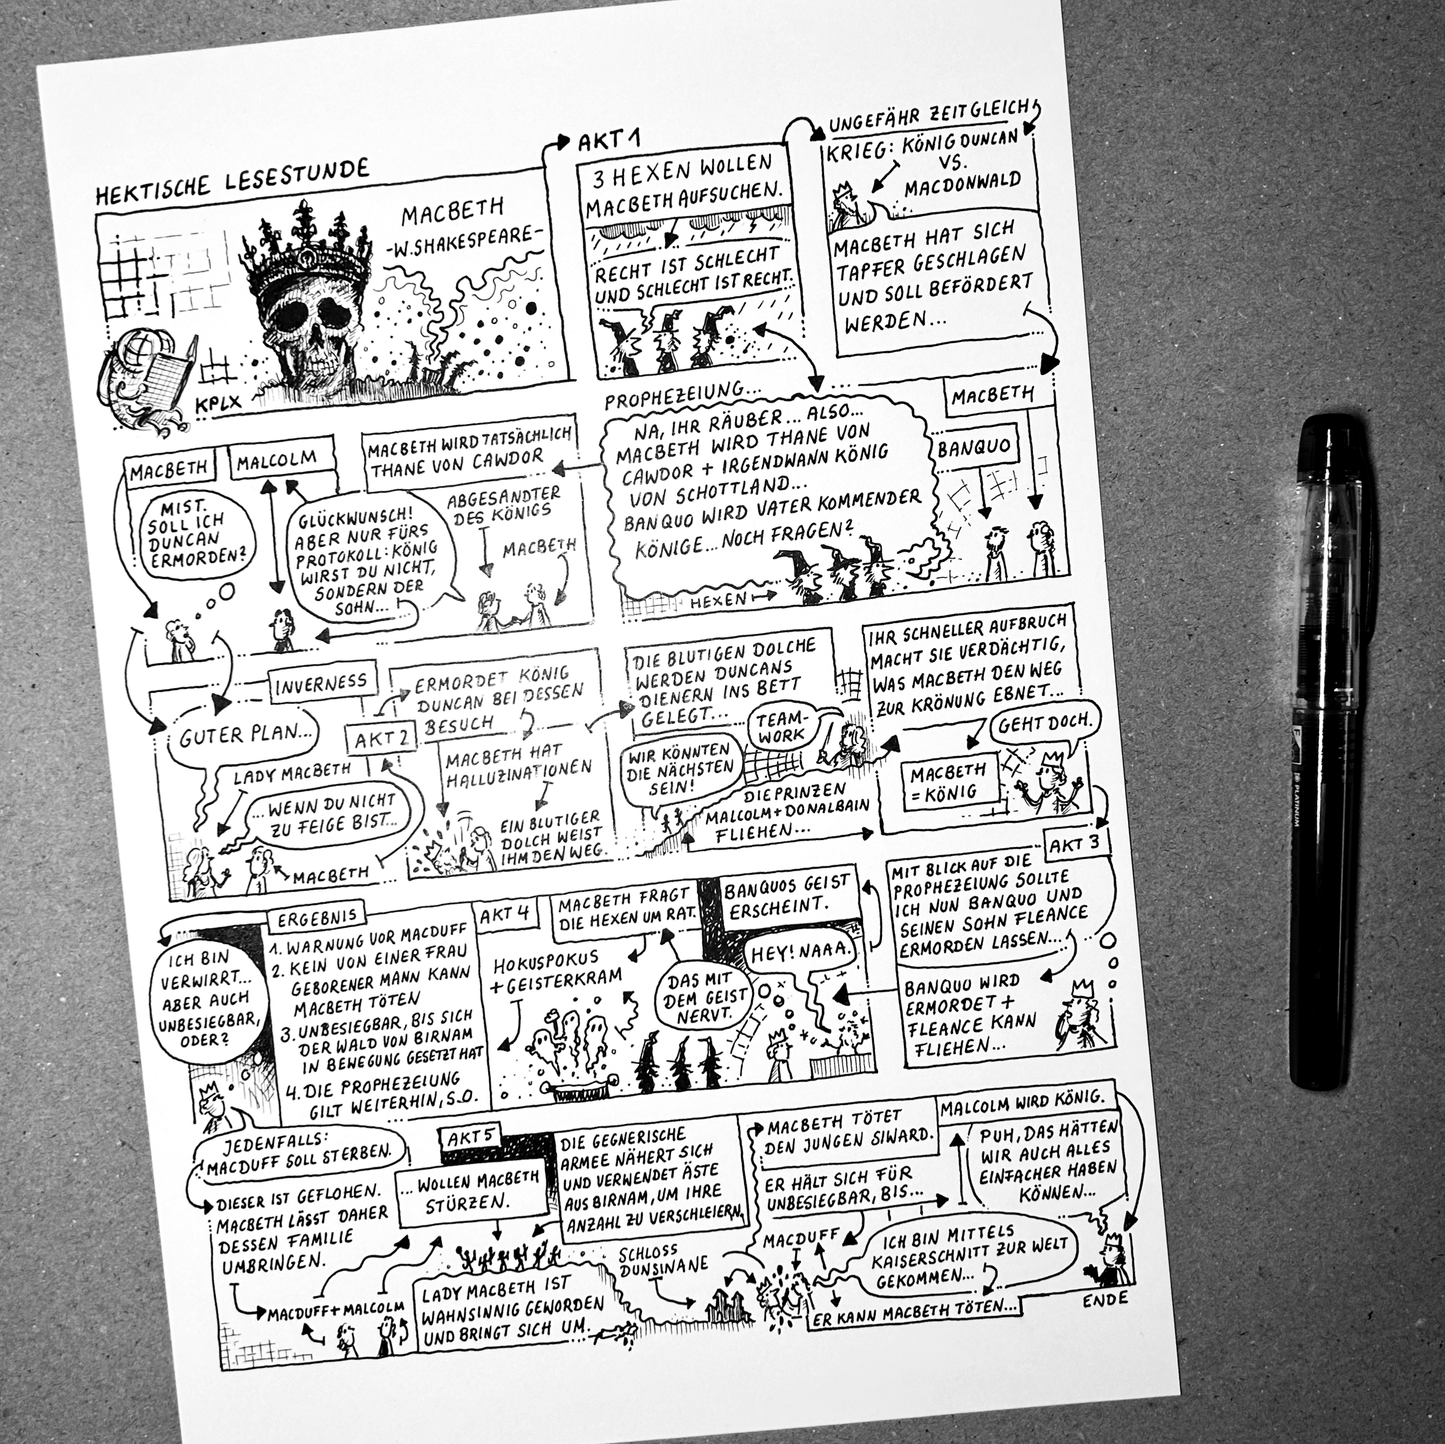 HEKTISCHE LESESTUNDE
MACBETH
-W.SHAKESPEARE-
KPLX
AKT 1
3 HEXEN WOLLEN
MACBETH AUFSUCHEN.
RECHT IST SCHLECHT
UND SCHLECHT IST RECHT.
UNGEFÄHR ZEITGLEICH
KRIEG: KÖNIG DUNCAN
VS.
MACDONWALD
MACBETH HAT SICH
TAPFER GESCHLAGEN
UND SOLL BEFÖRDERT
WERDEN...
MACBETH
BANQUO
PROPHEZEIUNG...
NA, IHR RÄUBER... ALSO...
MACBETH WIRD THANE VON
CAWDOR + IRGENDWANN KÖNIG
VON SCHOTTLAND...
BANQUO WIRD VATER KOMMENDER
KÖNIGE... NOCH FRAGEN?
HEXEN
MACBETH WIRD TATSÄCHLICH
THANE VON CAWDOR
ABGESANDTER
DES KÖNIGS
MACBETH
GLÜCKWUNSCH!
ABER NUR FÜRS
PROTOKOLL: KÖNIG
WIRST DU NICHT,
SONDERN DER
SOHN...
MALCOLM
MACBETH
MIST.
SOLL ICH
DUNCAN
ERMORDEN?
INVERNESS
GUTER PLAN...
LADY MACBETH
...WENN DU NICHT
ZU FEIGE BIST...
MACBETH
AKT 2
ERMORDET KÖNIG
DUNCAN BEI DESSEN
BESUCH
MACBETH HAT
HALLUZINATIONEN
EIN BLUTIGER
DOLCH WEIST
IHM DEN WEG.
DIE BLUTIGEN DOLCHE
WERDEN DUNCANS
DIENERN INS BETT
GELEGT...
TEAM-
WORK
WIR KÖNNTEN
DIE NÄCHSTEN
SEIN!
DIE PRINZEN
MALCOLM + DONALBAIN
FLIEHEN...
IHR SCHNELLER AUFBRUCH
MACHT SIE VERDÄCHTIG,
WAS MACBETH DEN WEG
ZUR KRÖNUNG EBNET...
GEHT DOCH.
MACBETH
= KÖNIG
AKT 3
MIT BLICK AUF DIE
PROPHEZEIUNG SOLLTE
ICH NUN BANQUO UND
SEINEN SOHN FLEANCE
ERMORDEN LASSEN...
BANQUO WIRD
ERMORDET +
FLEANCE KANN
FLIEHEN...
BANQUOS GEIST
ERSCHEINT.
HEY! NAAA.
DAS MIT
DEM GEIST
NERVT.
MACBETH FRAGT
DIE HEXEN UM RAT.
AKT 4
HOKUSPOKUS
+ GEISTERKRAM
ERGEBNIS
1. WARNUNG VOR MACDUFF
2. KEIN VON EINER FRAU
GEBORENER MANN KANN
MACBETH TÖTEN
3. UNBESIEGBAR, BIS SICH
DER WALD VON BIRNAM
IN BEWEGUNG GESETZT HAT
4. DIE PROPHEZEIUNG
GILT WEITERHIN, S.O.
ICH BIN
VERWIRRT...
ABER AUCH
UNBESIEGBAR,
ODER?
JEDENFALLS:
MACDUFF SOLL STERBEN.
DIESER IST GEFLOHEN.
MACBETH LÄSST DAHER
DESSEN FAMILIE
UMBRINGEN.
MACDUFF + MALCOLM
AKT 5
...WOLLEN MACBETH
STÜRZEN.
DIE GEGNERISCHE
ARMEE NÄHERT SICH
UND VERWENDET ÄSTE
AUS BIRNAM, UM IHRE
ANZAHL ZU VERSCHLEIERN.
LADY MACBETH IST
WAHNSINNIG GEWORDEN
UND BRINGT SICH UM.
SCHLOSS
DUNSINANE
MACBETH TÖTET
DEN JUNGEN SIWARD.
ER HÄLT SICH FÜR
UNBESIEGBAR, BIS...
MACDUFF
ICH BIN MITTELS
KAISERSCHNITT ZUR WELT
GEKOMMEN...
ER KANN MACBETH TÖTEN...
MALCOLM WIRD KÖNIG.
PUH, DAS HÄTTEN
WIR AUCH ALLES
EINFACHER HABEN
KÖNNEN...
ENDE
PLATINUM